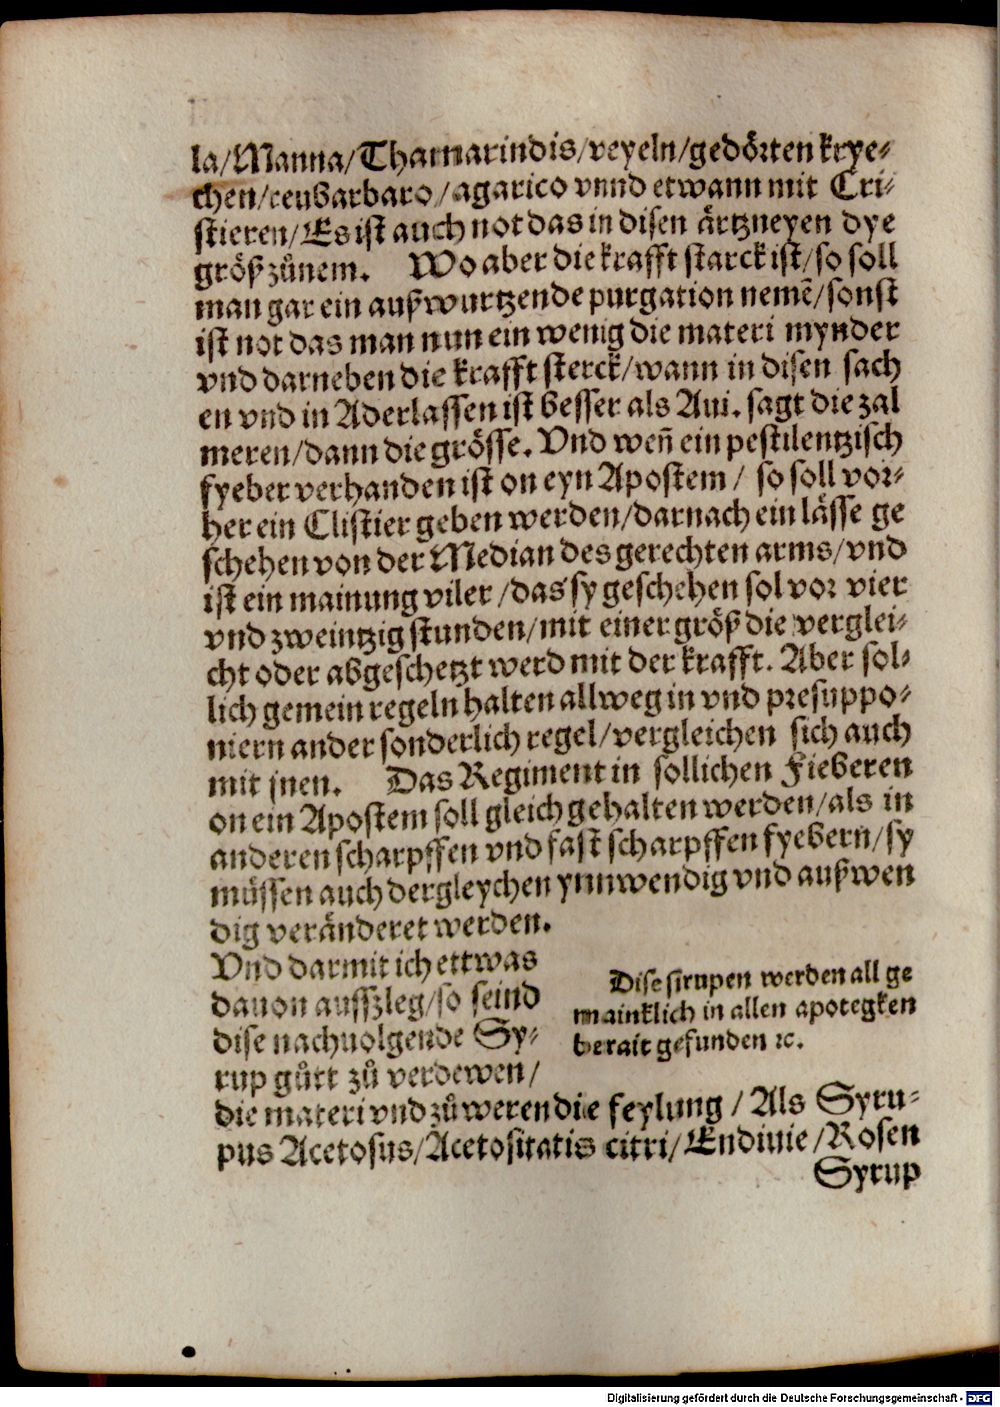 la/Manna/Thamarindis/veyeln/gedörten krye-
chen/reubarbaro/agarico vnnd etwann mit Cri-
stieren/Es ist auch not das in disen ärtzneyen dye
größ zůnem. Wo aber die krafft starck ist/so soll
man gar ein außwurtzende purgation nemẽ/sonst
ist not das man nun ein wenig die materi mynder
vnd darneben die krafft sterck/wann in disen sach
en vnd in Aderlassen ist besser als Aui. sagt die zal
meren/dann die grösse. Vnd weñ ein pestilentzisch
fyeber verhanden ist on eyn Apostem/ so soll vor-
her ein Clistier geben werden/darnach ein lässe ge
schehen von der Median des gerechten arms/vnd
ist ein mainung viler/das sy geschehen sol vor vier
vnd zweintzig stunden/mit einer größ die verglei-
cht oder abgeschetzt werd mit der krafft. Aber sol-
lich gemein regeln halten allweg in vnd presuppo-
niern ander sonderlich regel/vergleichen sich auch
mit jnen. Das Regiment in sollichen Fieberen
on ein Apostem soll gleich gehalten werden/als in
anderen scharpffen vnd fast scharpffen fyebern/sy
müssen auch dergleychen ynnwendig vnd außwen
dig veränderet werden.
Vnd darmit ich ettwas
dauon auffzleg/so seind
dise nachuolgende Sy-
rup gůtt zů verdewen/
Dise sirupen werden all ge
mainklich in allen apotegken
berait gefunden ꝛc.
die materi vnd zů weren die feylung/Als Syru-
pus Acetosus/Acetositatis citri/Endiuie/Rosen
Syrup
Digitalisierung gefördert durch die Deutsche Forschungsgemeinschaft - DFG